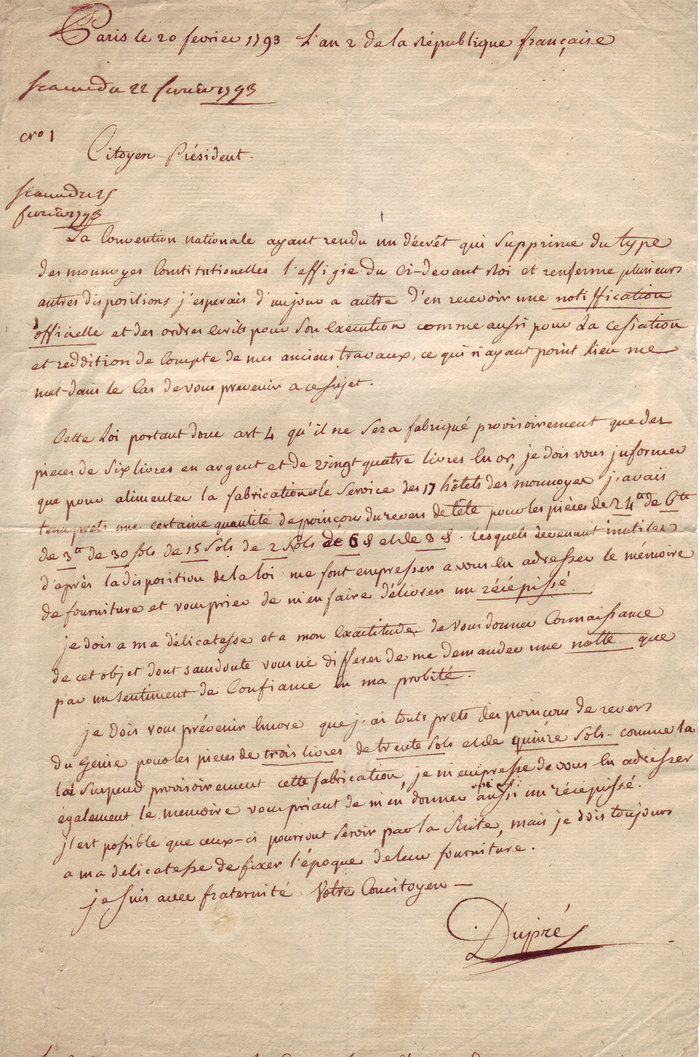 Paris le 20 fevrier 1793 L'an 2 de la République française
Seance du 22 fevrier 1793
Nro 1
Citoyen Président.
Seance du 25
fevrier 1793
La Convention nationale ayant rendu un décrêt qui Supprime du type
des monnoyes Constitutionelles l'effigie du Ci-devant Roi et renferme plusieurs
autres dispositions j'esperais d'un jour a autre d'en recevoir une notiffication
officielle et des ordres ecrits pour Son execution comme aussi pour La cessation
et reddition de Compte de mes anciens travaux, ce qui n'ayant point lieu me
met dans le Cas de vous prevenir a ce sujet.
Cette Loi portant donc art 4 qu'il ne Sera fabriqué provisoirement que des
pieces de Six livres en argent et de vingt quatre livres en or, je dois vous informer
que pour alimenter la fabrication le Service des 17 hôtels des monnoyes j'avais
tenu prets une certaine quantité de poincons du revers de tête pour les pièces de 24tt de 6tt
de 3tt de 30 sols de 15 Sols de 2 Sols de 6 8 et de 3 8. Lesquels devenant inutiles
d'après la disposition de la loi me font empresser a vous en adresser le mémoire
de fourniture et vous prier de m'en faire délivrer un récépissé
je dois a ma délicatesse et a mon Exactitude de vous donner Connaissance
de cet objet dont sans doute vous ne differés de me demander une notte que
par un sentiment de Confiance en ma probité.
je dois vous prévenir Encore que j'ai touts prets des poincons de revers
du Genie pour les pieces de trois livres de trente Sols et de quinze Sols. comme la
loi Suspend provisoirement cette fabrication, je m'empresse de vous en adresser
également le memoire vous priant de m'en donner aussi un récépissé.
il est possible que ceux-ci pourront Servir par la Suite, mais je dois toujours
a ma delicatesse de fixer l'époque de leur fourniture.
je suis avec fraternité Votre Concitoyen
Dupré